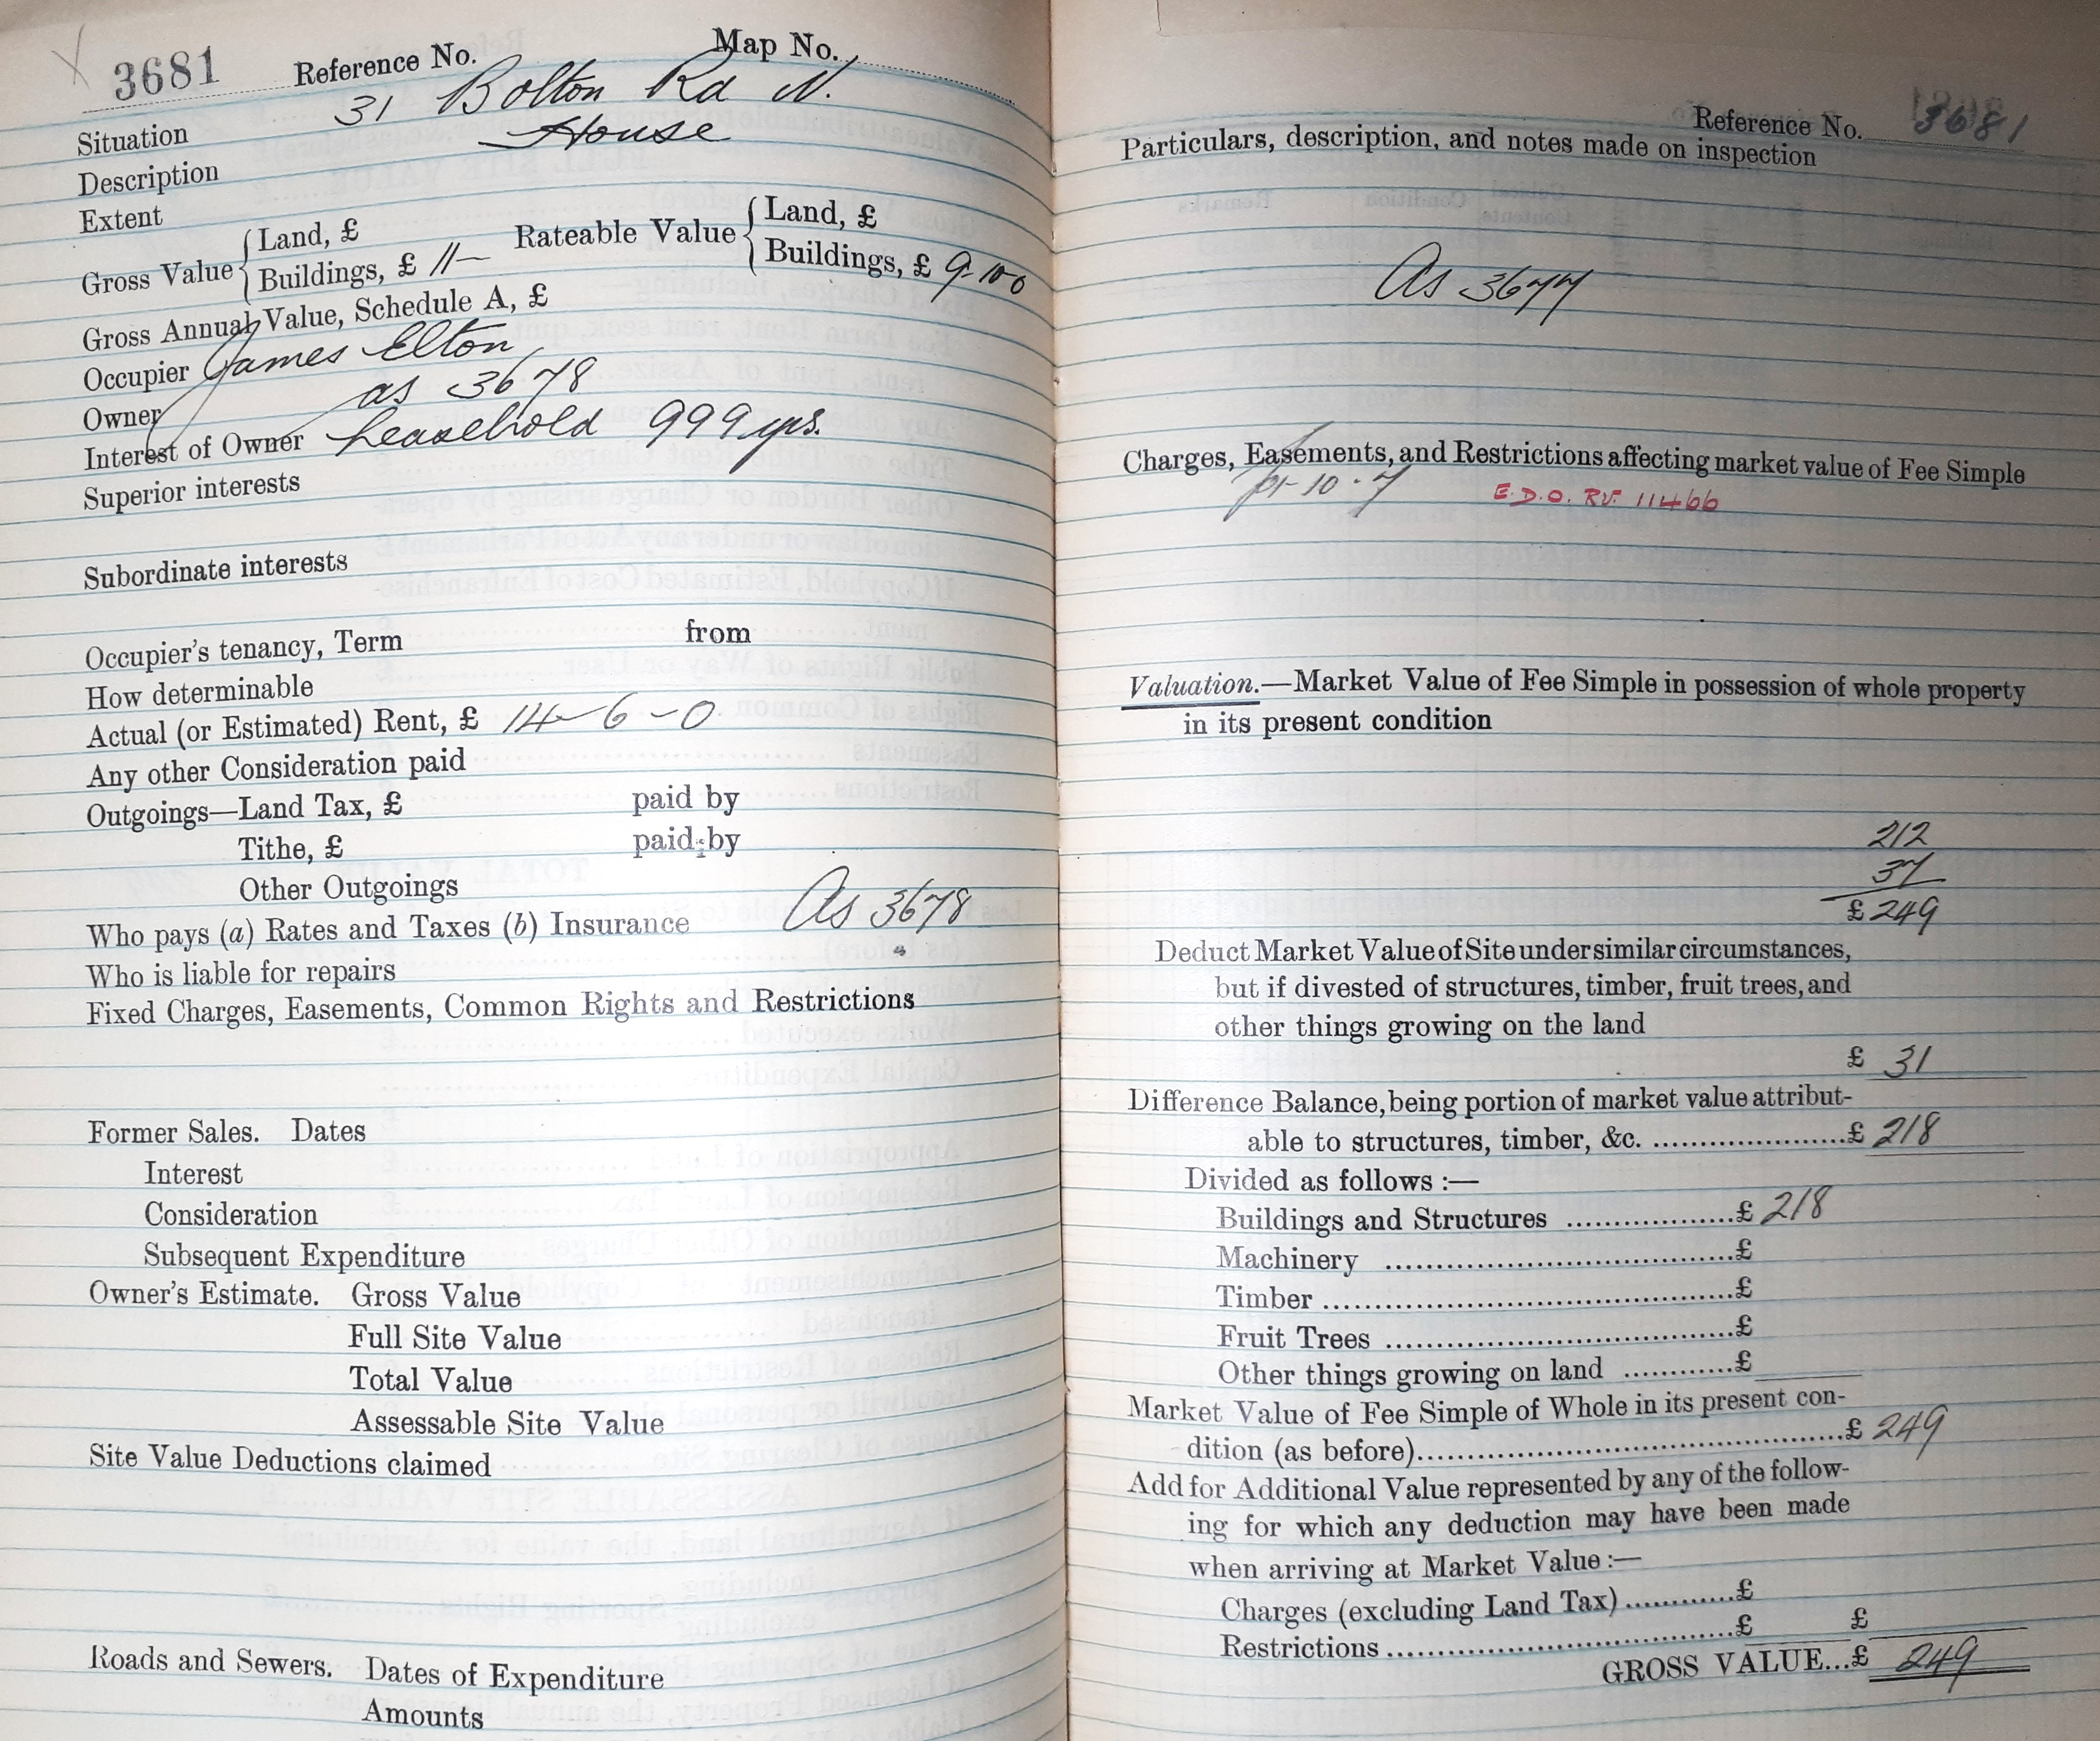 3681 Reference No. Map No.
Situation 31 Bolton Rd N.
Description House
Extent
Gross Value { Land, £ Buildings, £ 11— Rateable Value { Land, £ Buildings, £ 9-10-0
Gross Annual Value, Schedule A, £
Occupier James Elton
Owner as 3678
Interest of Owner Leasehold 999 yrs.
Superior interests
Subordinate interests
Occupier's tenancy, Term from
How determinable
Actual (or Estimated) Rent, £ 14-6-0
Any other Consideration paid
Outgoings—Land Tax, £ paid by
Tithe, £ paid by
Other Outgoings
Who pays (a) Rates and Taxes (b) Insurance As 3678
Who is liable for repairs
Fixed Charges, Easements, Common Rights and Restrictions
Former Sales. Dates
Interest
Consideration
Subsequent Expenditure
Owner's Estimate. Gross Value
Full Site Value
Total Value
Assessable Site Value
Site Value Deductions claimed
Roads and Sewers. Dates of Expenditure
Amounts
Reference No. 3681
Particulars, description, and notes made on inspection
As 3677
Charges, Easements, and Restrictions affecting market value of Fee Simple
10.7 E.D.O. RV. 11466
Valuation.—Market Value of Fee Simple in possession of whole property
in its present condition
212
37
£ 249
Deduct Market Value of Site under similar circumstances,
but if divested of structures, timber, fruit trees, and
other things growing on the land
£ 31
Difference Balance, being portion of market value attribut-
able to structures, timber, &c. ....................£ 218
Divided as follows :—
Buildings and Structures .................£ 218
Machinery ...................................£
Timber .........................................£
Fruit Trees ...................................£
Other things growing on land ...........£
Market Value of Fee Simple of Whole in its present con-
dition (as before)...........................................£ 249
Add for Additional Value represented by any of the follow-
ing for which any deduction may have been made
when arriving at Market Value :—
Charges (excluding Land Tax) ...........£
Restrictions ...................................£ £
GROSS VALUE...£ 249